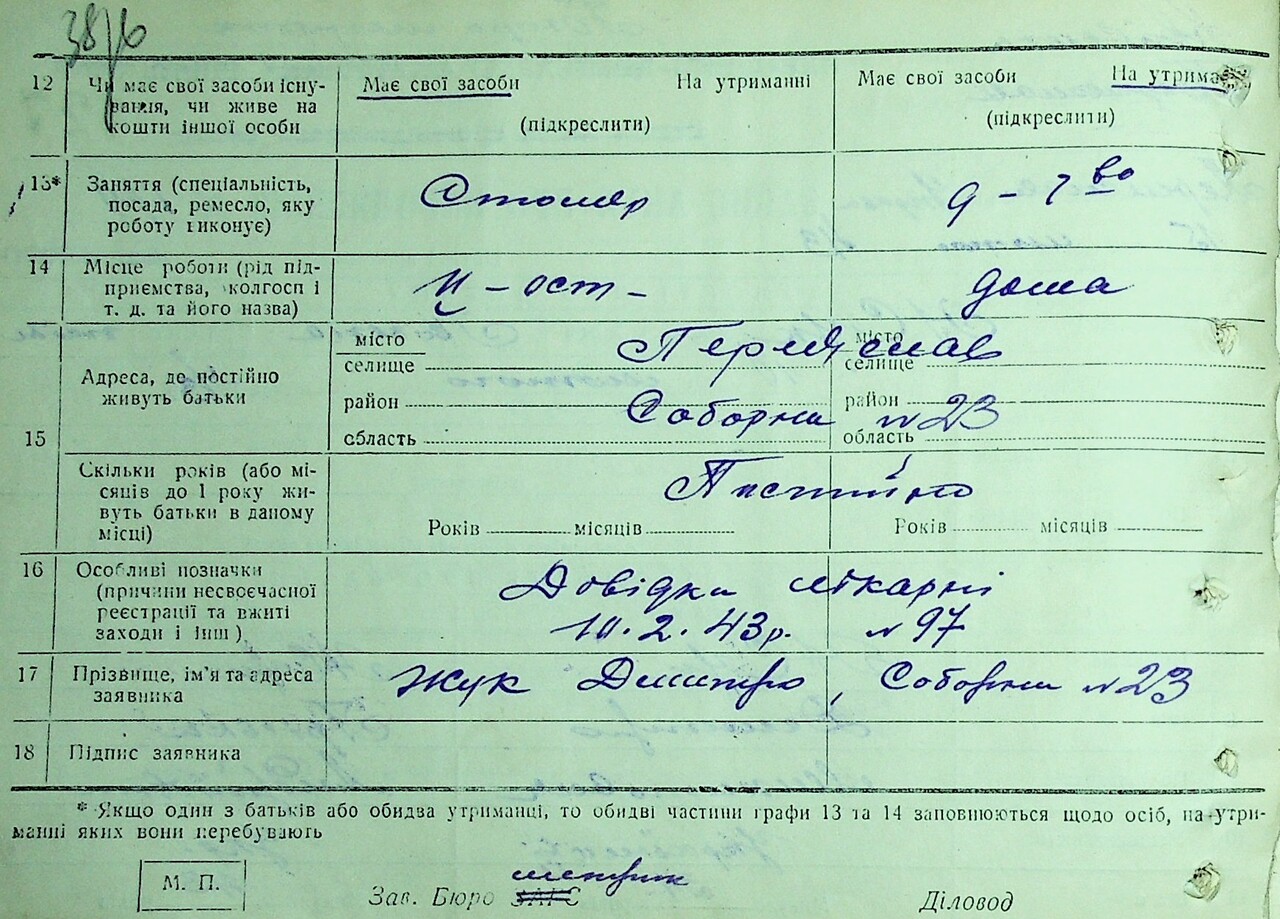 38/6
12 Чи має свої засоби існу-
вання, чи живе на
кошти іншої особи
Має свої засоби На утриманні
(підкреслити)
Має свої засоби На утрима
(підкреслити)
13* Заняття (спеціальність,
посада, ремесло, яку
роботу виконує)
Столяр
д - 7 во
14 Місце роботи (рід під-
приємства, колгосп і
т. д. та його назва)
дома
15 Адреса, де постійно
живуть батьки
місто
селище
район
область
Переяслав
Соборна № 23
місто
селище
район
область
Скільки років (або мі-
сяців до 1 року жи-
вуть батьки в даному
місці)
Постійно
Років місяців
Років місяців
16 Особливі позначки
(причини несвоєчасної
реєстрації та вжиті
заходи і інш.)
Довідка лікарні
10.2.43р. № 97
17 Прізвище, ім'я та адреса
заявника
Жук Дмитро, Соборна № 23
18 Підпис заявника
* Якщо один з батьків або обидва утриманці, то обидві частини графи 13 та 14 заповнюються щодо осіб, на утри-
манні яких вони перебувають
М. П.
метрик
Зав. Бюро ЗАГС
Діловод